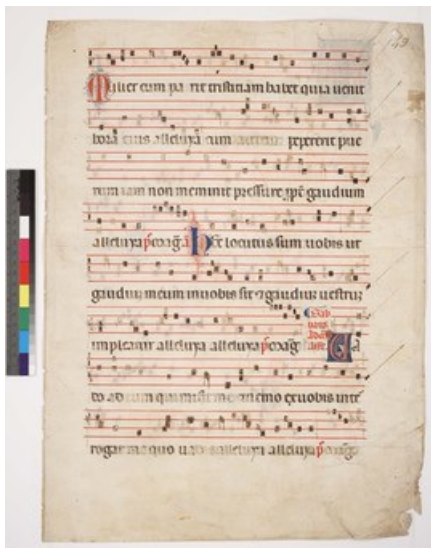 Mulier cum pa rit tristitiam habet quia venit
hora eius alleluya cum peperit pue
rum iam non meminit pressure gaudium
alleluya Hec locutus sum vobis ut
gaudium meum in vobis sit gaudium vestrum
impleatur alleluya alleluya Va
do ad eum qui misit me nemo ex vobis inte
rogat me quo vadis alleluya alleluya